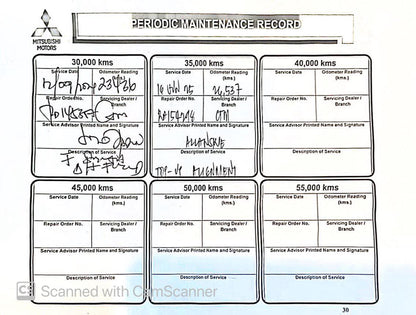 MITSUBISHI
MOTORS
PERIODIC MAINTENANCE RECORD
30,000 kms
Service Date Odometer Reading (kms.)
Repair Order No. Servicing Dealer / Branch
Service Advisor Printed Name and Signature
Description of Service
35,000 kms
Service Date Odometer Reading (kms.)
26,537
Repair Order No. Servicing Dealer / Branch
Service Advisor Printed Name and Signature
Description of Service
ALIGNMENT
40,000 kms
Service Date Odometer Reading (kms.)
Repair Order No. Servicing Dealer / Branch
Service Advisor Printed Name and Signature
Description of Service
45,000 kms
Service Date Odometer Reading (kms.)
Repair Order No. Servicing Dealer / Branch
Service Advisor Printed Name and Signature
Description of Service
50,000 kms
Service Date Odometer Reading (kms.)
Repair Order No. Servicing Dealer / Branch
Service Advisor Printed Name and Signature
Description of Service
55,000 kms
Service Date Odometer Reading (kms.)
Repair Order No. Servicing Dealer / Branch
Service Advisor Printed Name and Signature
Description of Service
CS Scanned with CamScanner
30